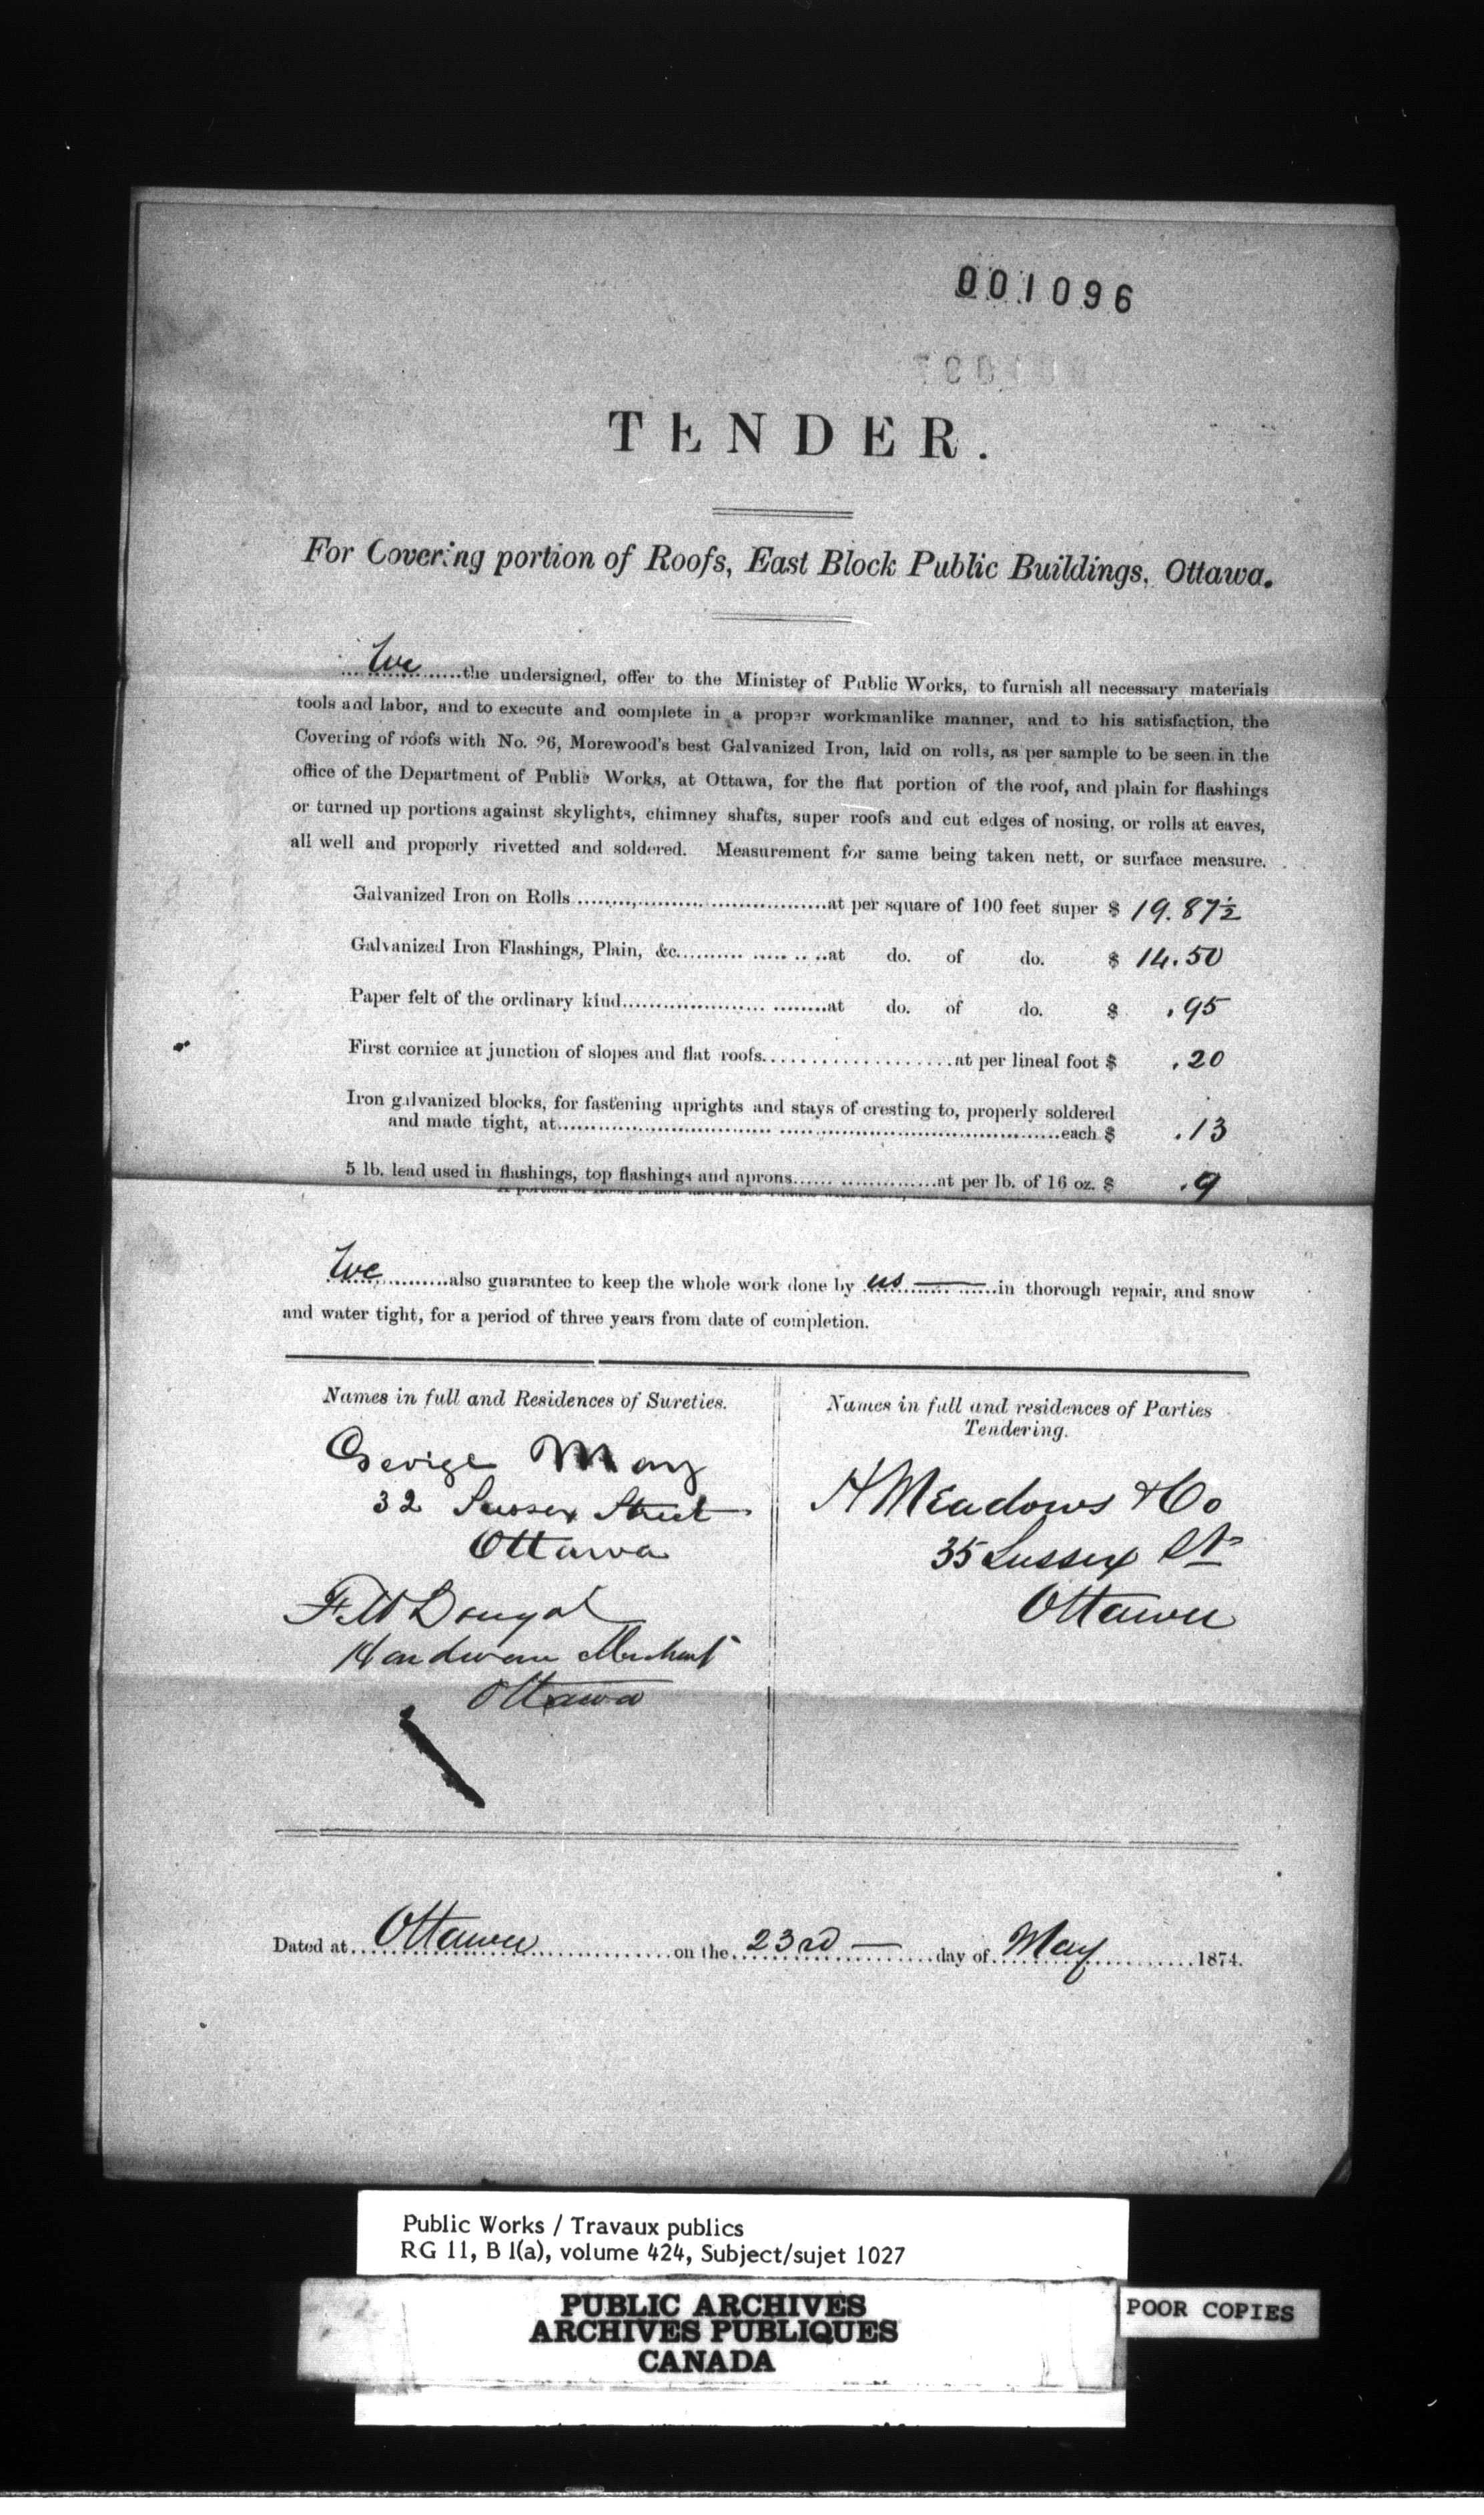 001096
TENDER.
For Covering portion of Roofs, East Block Public Buildings, Ottawa.
We the undersigned, offer to the Minister of Public Works, to furnish all necessary materials
tools and labor, and to execute and complete in a proper workmanlike manner, and to his satisfaction, the
Covering of roofs with No. 26, Morewood's best Galvanized Iron, laid on rolls, as per sample to be seen in the
office of the Department of Public Works, at Ottawa, for the flat portion of the roof, and plain for flashings
or turned up portions against skylights, chimney shafts, super roofs and cut edges of nosing, or rolls at eaves,
all well and properly rivetted and soldered. Measurement for same being taken nett, or surface measure.
Galvanized Iron on Rolls at per square of 100 feet super $ 19.87½
Galvanized Iron Flashings, Plain, &c. at do. of do. $ 14.50
Paper felt of the ordinary kind at do. of do. $ .95
First cornice at junction of slopes and flat roofs at per lineal foot $ .20
Iron galvanized blocks, for fastening uprights and stays of cresting to, properly soldered
and made tight, at each $ .13
5 lb. lead used in flashings, top flashings and aprons at per lb. of 16 oz. $ .9
We also guarantee to keep the whole work done by us in thorough repair, and snow
and water tight, for a period of three years from date of completion.
Names in full and Residences of Sureties.
George May
32 Sussex Street
Ottawa
Hardware Merchant
Ottawa
Names in full and residences of Parties
Tendering.
H Meadows & Co
35 Sussex St
Ottawa
Dated at Ottawa on the 23rd day of May 1874.
Public Works / Travaux publics
RG 11, B 1(a), volume 424, Subject/sujet 1027
PUBLIC ARCHIVES
ARCHIVES PUBLIQUES
CANADA
POOR COPIES